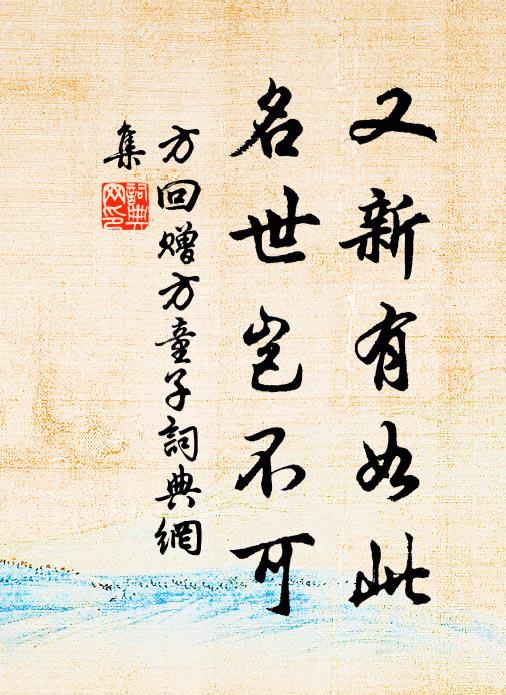 又新有如此
名世岂不可
方回赠方童子詞典網
集
詞典網印